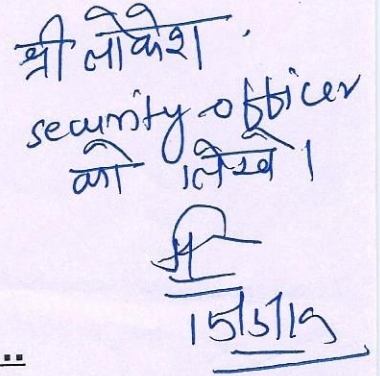 श्री लोकेश
security officer
को लिखे।
15/5/19
..